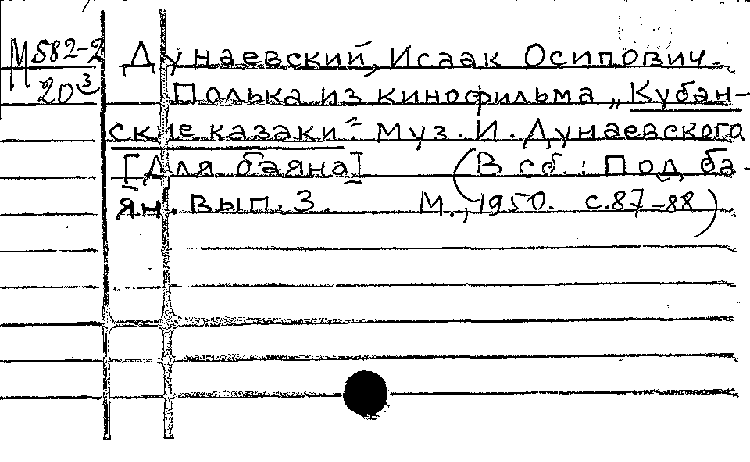 М582-2 Дунаевский, Исаак Осипович.
20³ Полька из кинофильма „Кубан-
ские казаки". Муз. И. Дунаевского
[Для баяна] (В сб.: Под ба-
ян. Вып. 3. М., 1950. с.87-88)